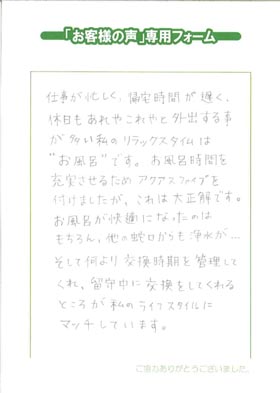 「お客様の声」専用フォーム
仕事が忙しく、帰宅時間が遅く、
休日もあれやこれやと外出する事
が多い私のリラックスタイムは
"お風呂"です。お風呂時間を
充実させるためアクアスファイブを
付けましたが、これは大正解です。
お風呂が快適になったのは
もちろん、他の蛇口からも浄水が…
そして何より交換時期を管理して
くれ、留守中に交換をしてくれる
ところが私のライフスタイルに
マッチしています。
ご協力ありがとうございました。